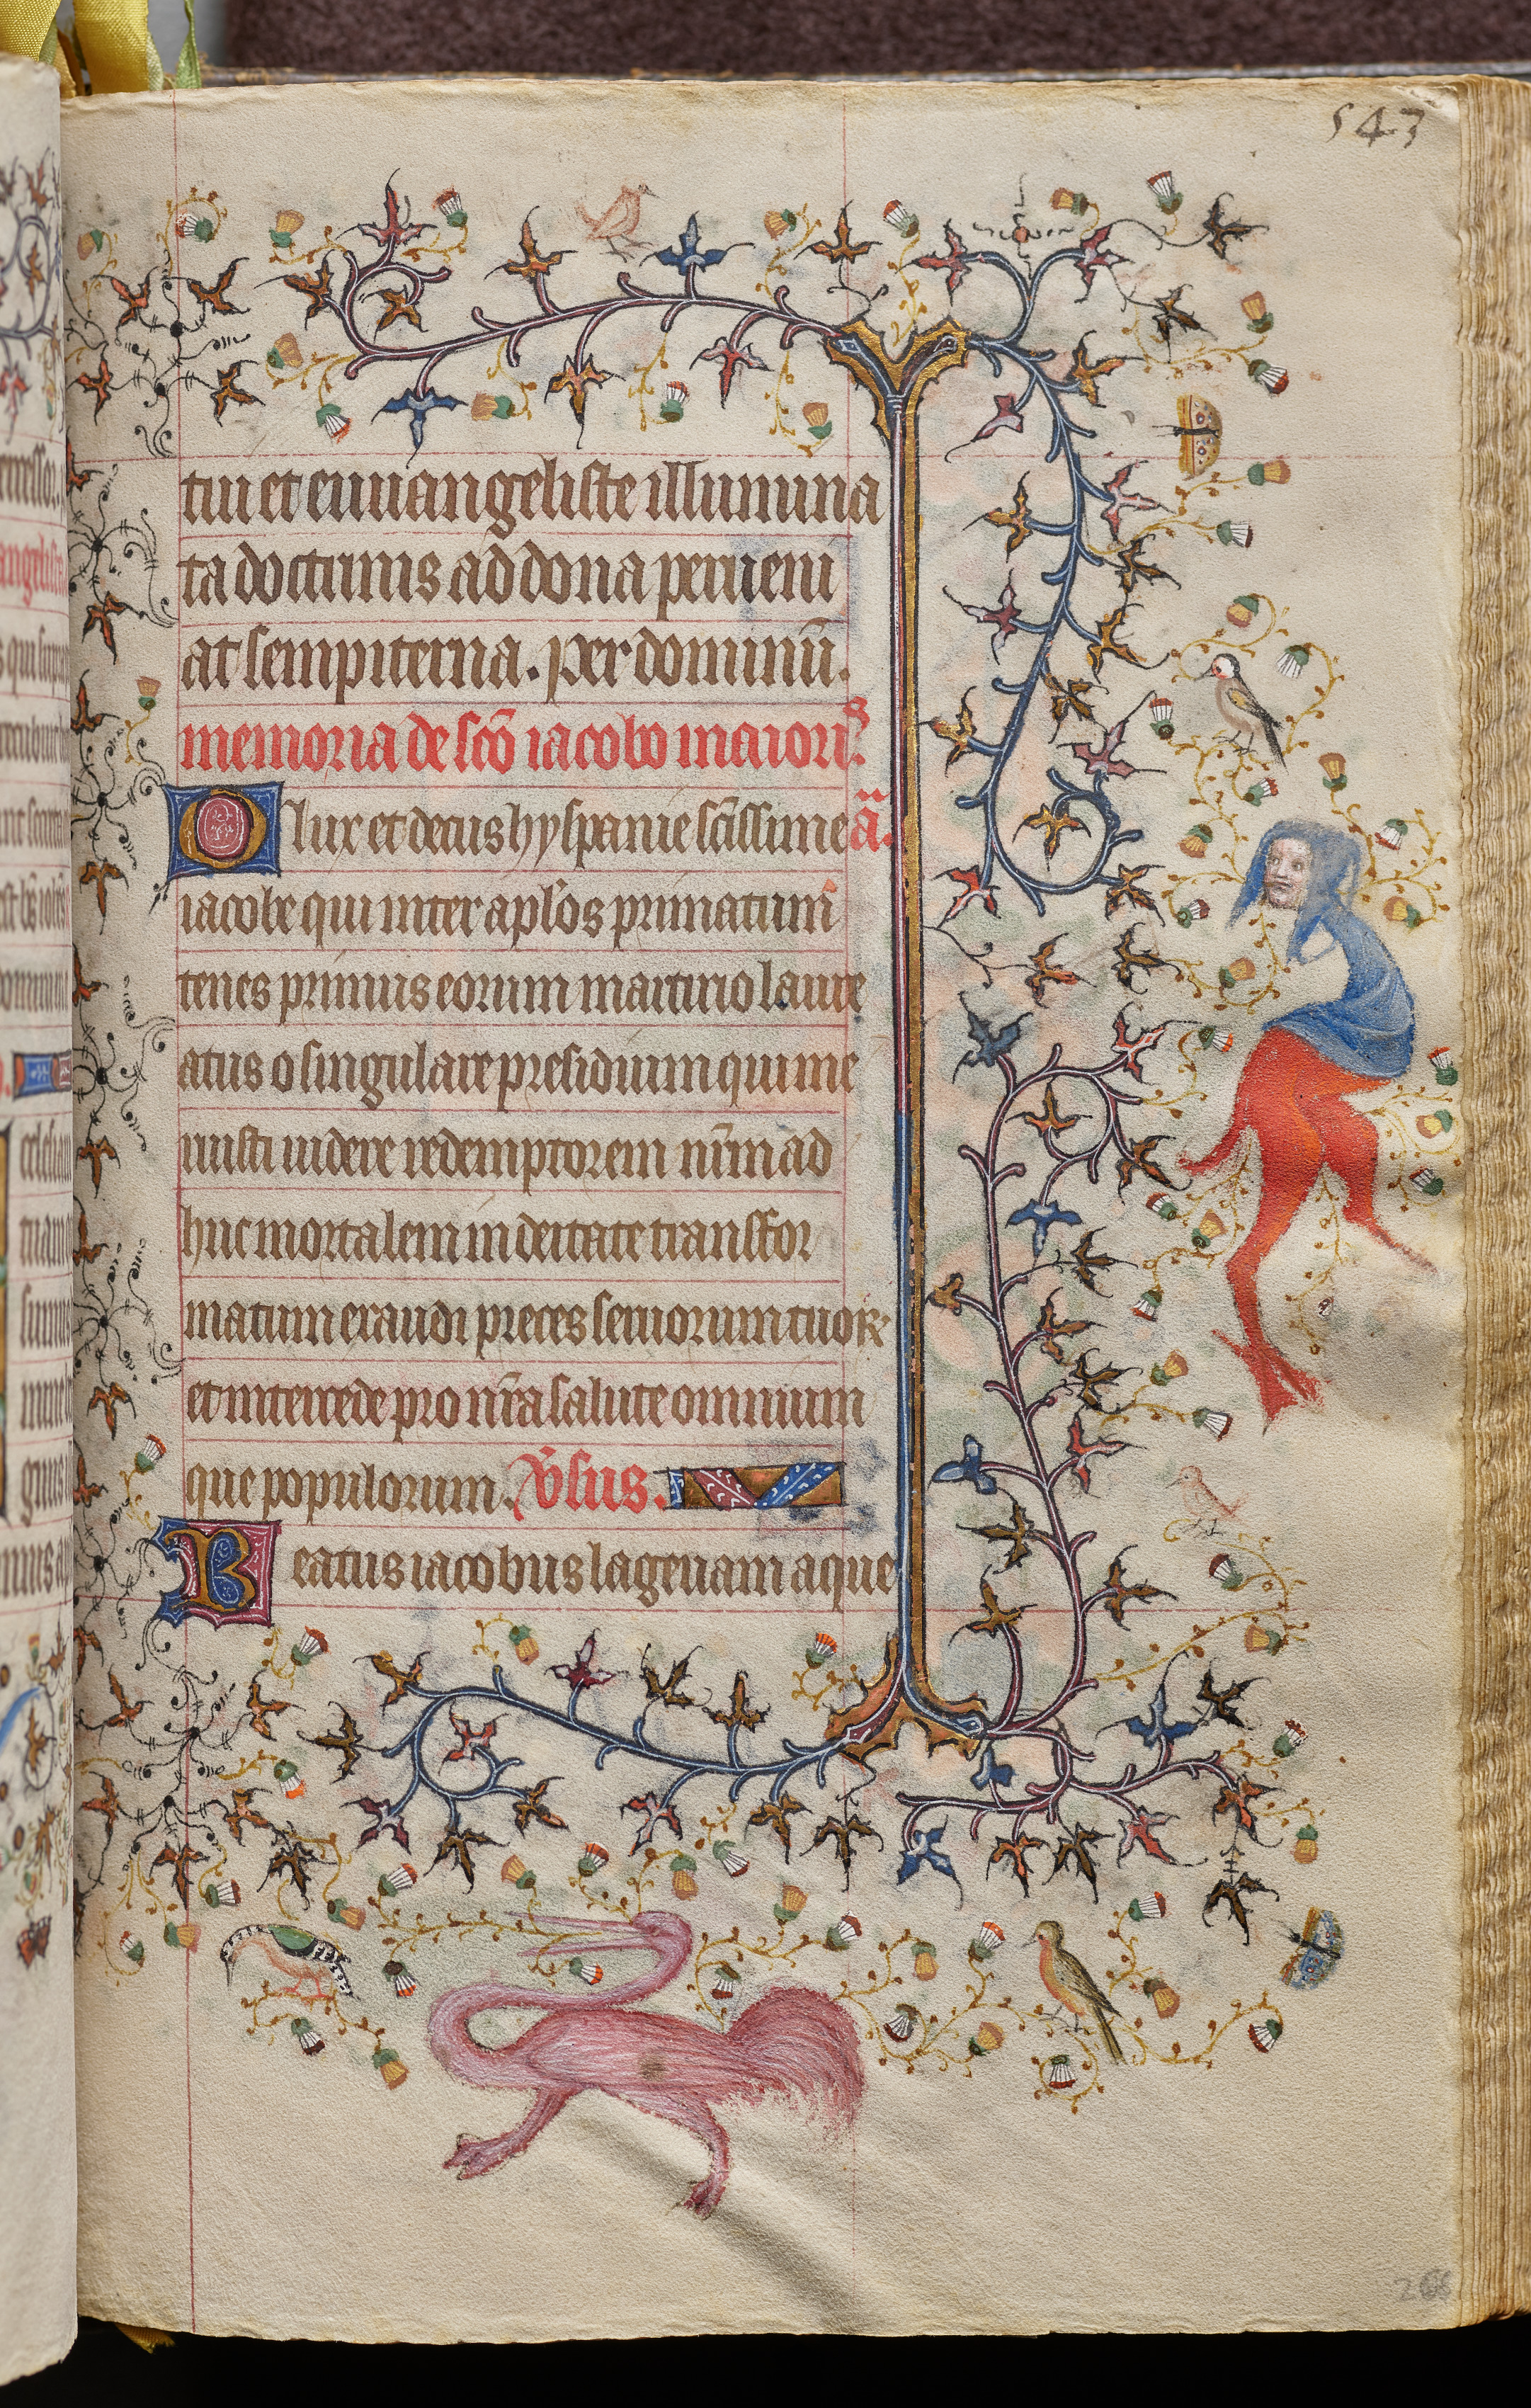 543
tui et euuangeliste illumina
ta doctrinis ad dona perueni
at sempiterna. per dominū.
memoria de scō iacobo maioris.
O lux et decus hyspanie scīssime ā.
iacobe qui inter aplōs primatum
tenes primus eorum martirio laure
atus o singulare presidium qui me
ruisti uidere redemptorem nr̄m ad
huc mortalem in deitate transfor
matum exaudi preces seruorum tuoꝝ
et intercede pro nr̄a salute omnium
que populorum. v̄sus.
Beatus iacobus lagenam aque
266